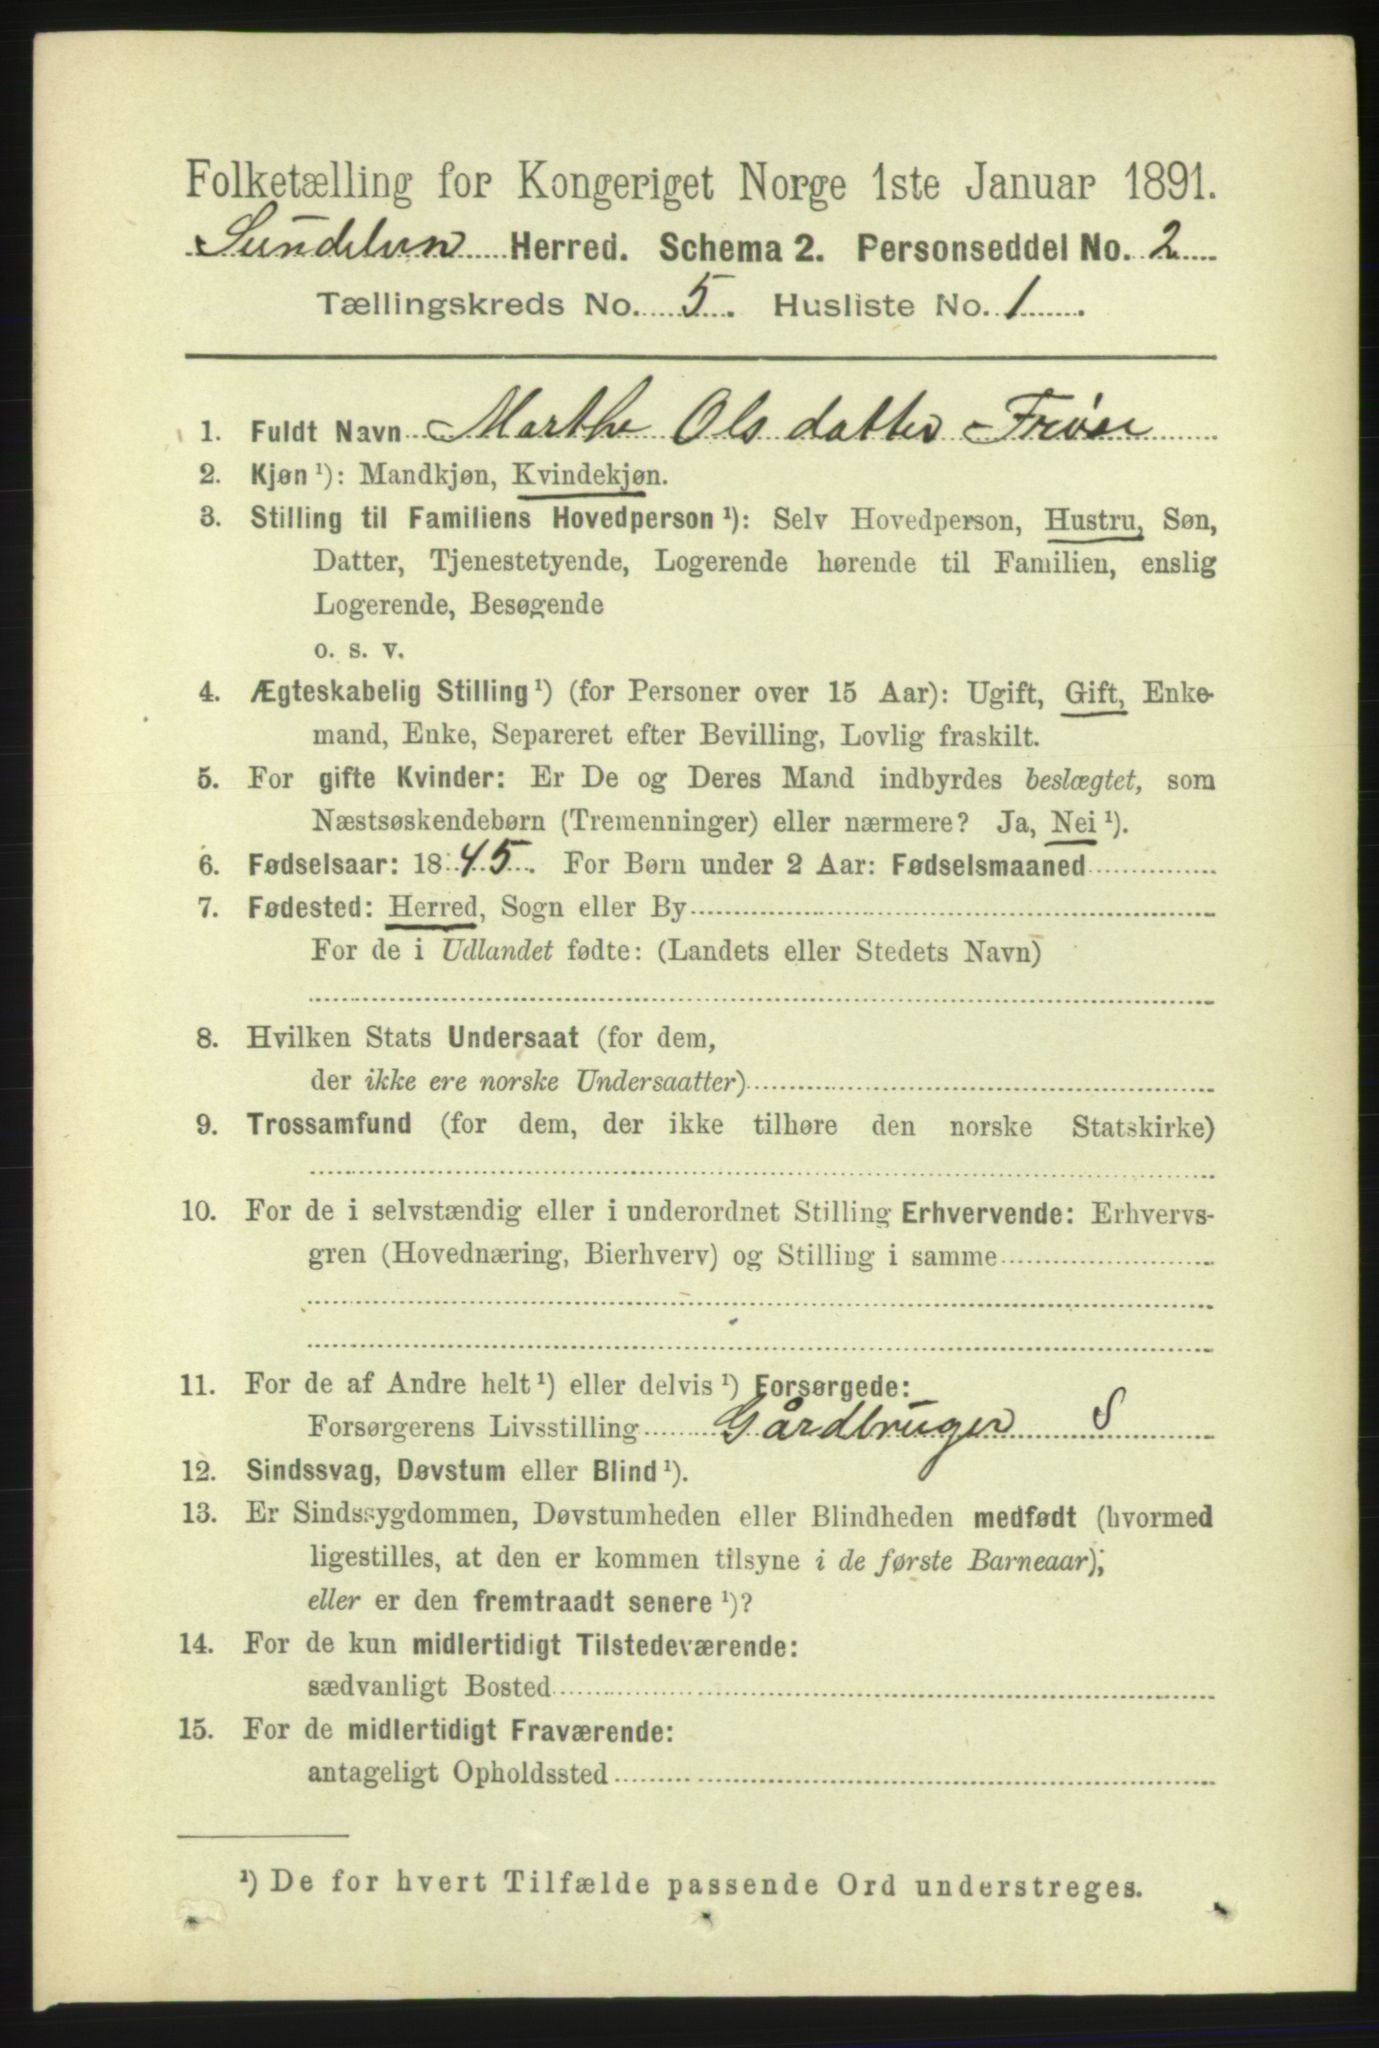 Folketælling for Kongeriget Norge 1ste Januar 1891.
Herred. Schema 2. Personseddel No. 2
Tællingskreds No. 5. Husliste No. 1.
1. Fuldt Navn Marthe Olsdatter Frøse
2. Kjøn ¹): Mandkjøn, Kvindekjøn.
3. Stilling til Familiens Hovedperson ¹): Selv Hovedperson, Hustru, Søn,
Datter, Tjenestetyende, Logerende hørende til Familien, enslig
Logerende, Besøgende
o. s. v.
4. Ægteskabelig Stilling ¹) (for Personer over 15 Aar): Ugift, Gift, Enke-
mand, Enke, Separeret efter Bevilling, Lovlig fraskilt.
5. For gifte Kvinder: Er De og Deres Mand indbyrdes beslægtet, som
Næstsøskendebørn (Tremenninger) eller nærmere? Ja, Nei ¹).
6. Fødselsaar: 1845. For Børn under 2 Aar: Fødselsmaaned
7. Fødested: Herred, Sogn eller By
For de i Udlandet fødte: (Landets eller Stedets Navn)
8. Hvilken Stats Undersaat (for dem,
der ikke ere norske Undersaatter)
9. Trossamfund (for dem, der ikke tilhøre den norske Statskirke)
10. For de i selvstændig eller i underordnet Stilling Erhvervende: Erhvervs-
gren (Hovednæring, Bierhverv) og Stilling i samme
11. For de af Andre helt ¹) eller delvis ¹) Forsørgede:
Forsørgerens Livsstilling Gårdbruger S
12. Sindssvag, Døvstum eller Blind ¹).
13. Er Sindssygdommen, Døvstumheden eller Blindheden medfødt (hvormed
ligestilles, at den er kommen tilsyne i de første Barneaar);
eller er den fremtraadt senere ¹)?
14. For de kun midlertidigt Tilstedeværende:
sædvanligt Bosted
15. For de midlertidigt Fraværende:
antageligt Opholdssted
¹) De for hvert Tilfælde passende Ord understreges.